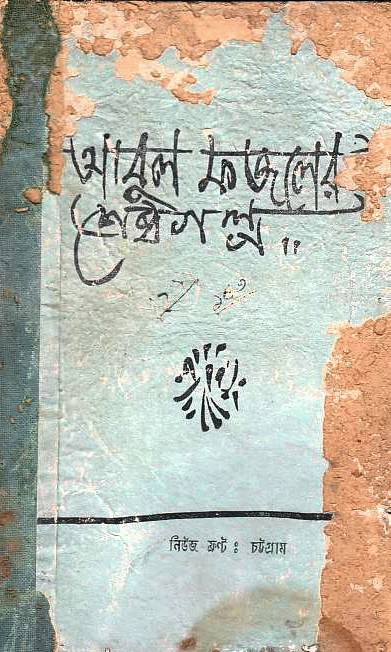 আবুল ফজলের
শ্রেষ্ঠ গল্প
নিউজ ফ্রণ্ট : চট্টগ্রাম